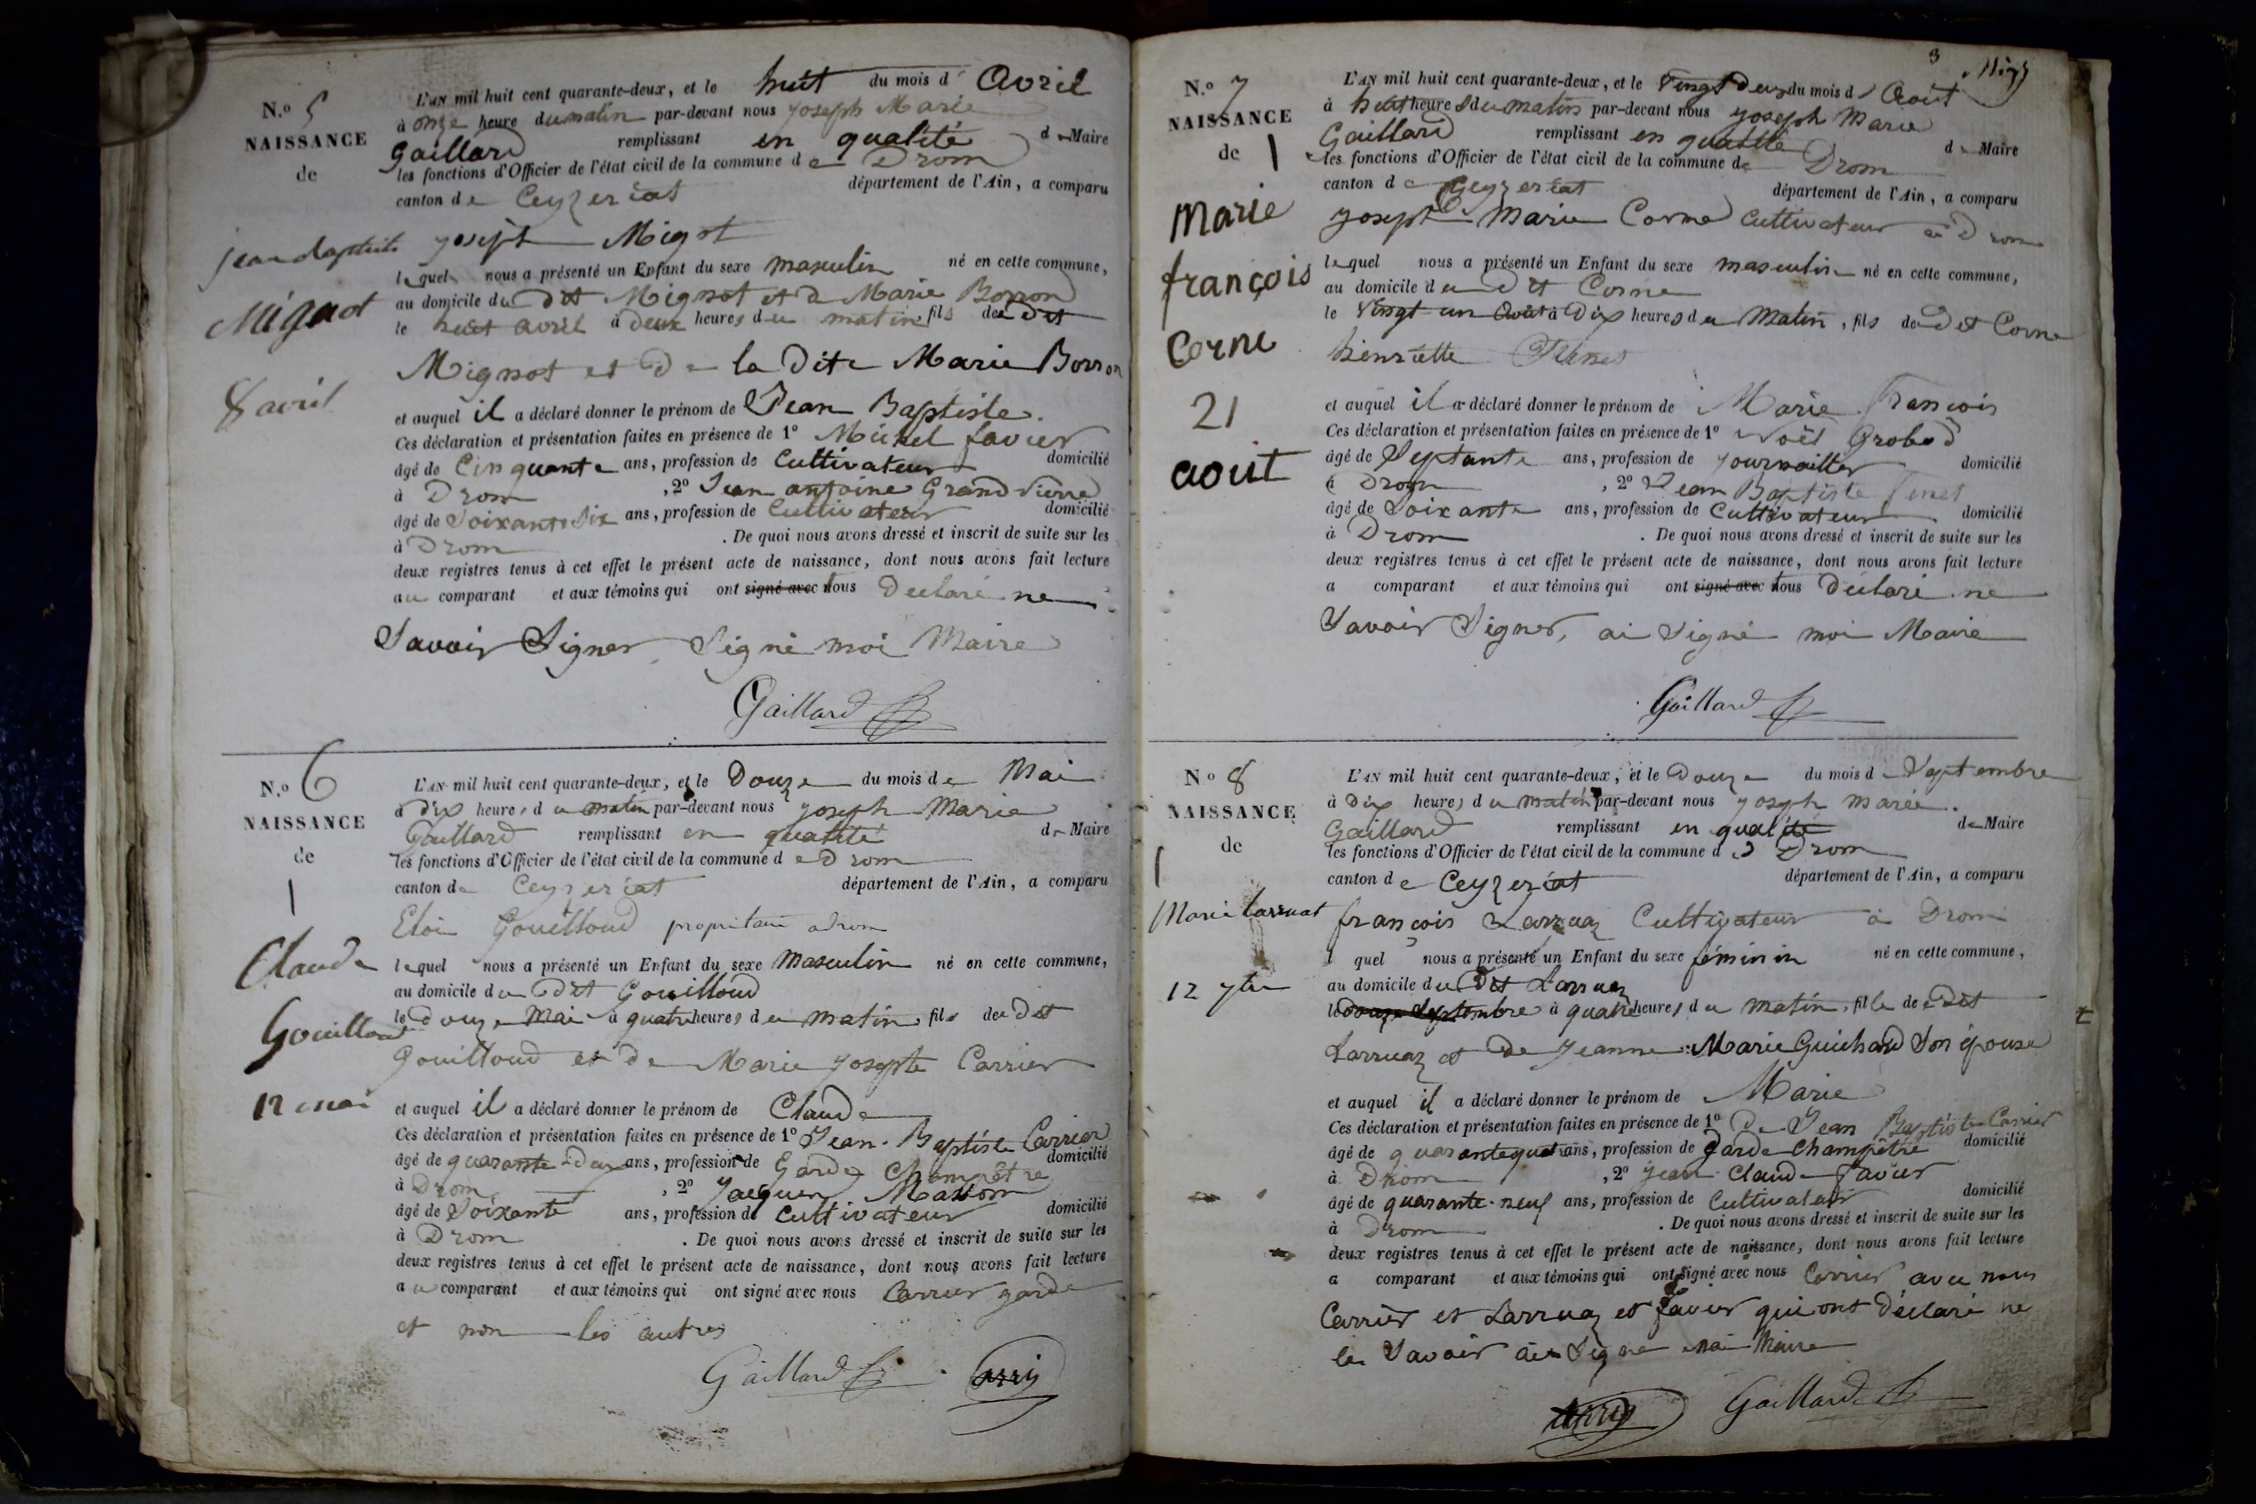 N.o 5
NAISSANCE
de
jean baptiste
Mignot
8 avril
L'AN mil huit cent quarante-deux, et le huit du mois d' Avril
à onze heure du matin par-devant nous joseph Marie
Gaillard remplissant en qualité de Maire
les fonctions d'Officier de l'état civil de la commune de Drom
canton de Ceyzeriat département de l'Ain, a comparu
joseph Mignot
lequel nous a présenté un Enfant du sexe masculin né en cette commune,
au domicile du dit Mignot et de Marie Borron
le huit avril à deux heures du matin, fils du dit
Mignot et de la dite Marie Borron
et auquel il a déclaré donner le prénom de Jean Baptiste.
Ces déclaration et présentation faites en présence de 1o Michel favier
âgé de Cinquante ans, profession de Cultivateur domicilié
à Drom, 2o Jean antoine Grand Pierre
âgé de Soixante Six ans, profession de Cultivateur domicilié
à Drom. De quoi nous avons dressé et inscrit de suite sur les
deux registres tenus à cet effet le présent acte de naissance, dont nous avons fait lecture
au comparant et aux témoins qui ont signé avec tous Déclaré ne
Savoir Signer Signé moi Maire
Gaillard
N.o 6
NAISSANCE
de
Claude
Gouilloud
12 mai
L'AN mil huit cent quarante-deux, et le Douze du mois de Mai
à dix heures du matin par-devant nous joseph Marie
Gaillard remplissant en qualité de Maire
les fonctions d'Officier de l'état civil de la commune de Drom
canton de Ceyzeriat département de l'Ain, a comparu
Eloi Gouilloud propriétaire a drom
lequel nous a présenté un Enfant du sexe Masculin né en cette commune,
au domicile du dit Gouilloud
le douze Mai à quatre heures du matin, fils du dit
Gouilloud et de Marie josephte Carrier
et auquel il a déclaré donner le prénom de Claude
Ces déclaration et présentation faites en présence de 1o Jean-Baptiste Carrier
âgé de quarante-deux ans, profession de Garde Champêtre domicilié
à Drom, 2o jacques Masson
âgé de Soixante ans, profession de Cultivateur domicilié
à Drom. De quoi nous avons dressé et inscrit de suite sur les
deux registres tenus à cet effet le présent acte de naissance, dont nous avons fait lecture
au comparant et aux témoins qui ont signé avec nous Carrier garde
et non les autres
Gaillard
3
N.o 7
NAISSANCE
de
Marie
françois
Corne
21
aout
L'AN mil huit cent quarante-deux, et le Vingt Deux du mois d' Aout
à huit heures du matin par-devant nous joseph Marie
Gaillard remplissant en qualité de Maire
les fonctions d'Officier de l'état civil de la commune de Drom
canton de Ceyzeriat département de l'Ain, a comparu
joseph Marie Corne Cultivateur à Drom
lequel nous a présenté un Enfant du sexe masculin né en cette commune,
au domicile du dit Corne
le Vingt un Aout à Dix heures du Matin, fils du dit Corne
hienriette
et auquel il a déclaré donner le prénom de Marie François
Ces déclaration et présentation faites en présence de 1o Noël Grobod
âgé de Septante ans, profession de journailler domicilié
à Drom, 2o Jean Baptiste
âgé de Soixante ans, profession de Cultivateur domicilié
à Drom. De quoi nous avons dressé et inscrit de suite sur les
deux registres tenus à cet effet le présent acte de naissance, dont nous avons fait lecture
a comparant et aux témoins qui ont signé avec tous Déclaré ne
Savoir Signer, ai Signé moi Maire
Gaillard
No 8
NAISSANCE
de
Marie Larruat
12 7bre
L'AN mil huit cent quarante-deux, et le Douze du mois de Septembre
à Dix heures du matin par-devant nous joseph marie
Gaillard remplissant en qualité de Maire
les fonctions d'Officier de l'état civil de la commune de Drom
canton de Ceyzeriat département de l'Ain, a comparu
françois Larruaz Cultivateur à Drom
l quel nous a présenté un Enfant du sexe féminin né en cette commune,
au domicile du Dit Larruaz
le douze Septembre à quatre heures du matin, fille de dit
Larruaz et de jeanne Marie Guichard Son épouse
et auquel il a déclaré donner le prénom de Marie
Ces déclaration et présentation faites en présence de 1o De Jean Baptiste Carrier
âgé de quarante quatre ans, profession de garde Champêtre domicilié
à Drom, 2o jean Claude Favier
âgé de quarante-neuf ans, profession de Cultivateur domicilié
à Drom. De quoi nous avons dressé et inscrit de suite sur les
deux registres tenus à cet effet le présent acte de naissance, dont nous avons fait lecture
a comparant et aux témoins qui ont signé avec nous Carrier avec nous
Carrier et Larruaz et Favier qui ont Déclaré ne
le Savoir ai Signé moi Maire
Gaillard